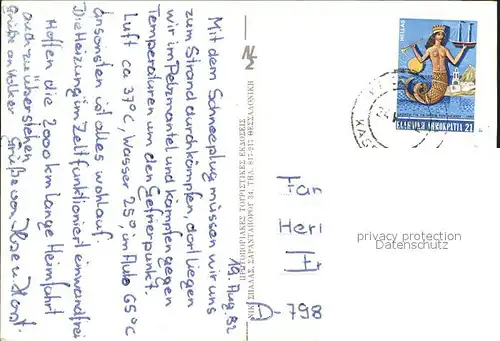 19. Aug. 82
Mit dem Schneepflug müssen wir uns
zum Strand durchkämpfen, dort liegen
wir im Pelzmantel und kämpfen gegen
Temperaturen um den Gefrierpunkt.
Luft ca 37°C, Wasser 25°, im Auto 65°C
ansonsten ist alles wohlauf.
Die Heizung im Zelt funktioniert einwandfrei
Hoffen die 2000 km lange Heimfahrt
auch zu überstehen
Grüße von Ilse u. Horst.
Gruß an Volker
ΠΡΩΤΟΤΥΠΟΙ ΣΚΗΝΑΙ ΤΟΥΡΙΣΤΙΚΕΣ ΕΚΔΟΣΕΙΣ
ΣΑΡΑΝΤΑΠΟΡΟΥ 34, ΤΗΛ. ΘΕΣΣΑΛΟΝΙΚΗ
HELLAS
ΕΛΛΗΝΙΚΗ ΔΗΜΟΚΡΑΤΙΑ 21
Fam
Herr
D-798
privacy protection
Datenschutz